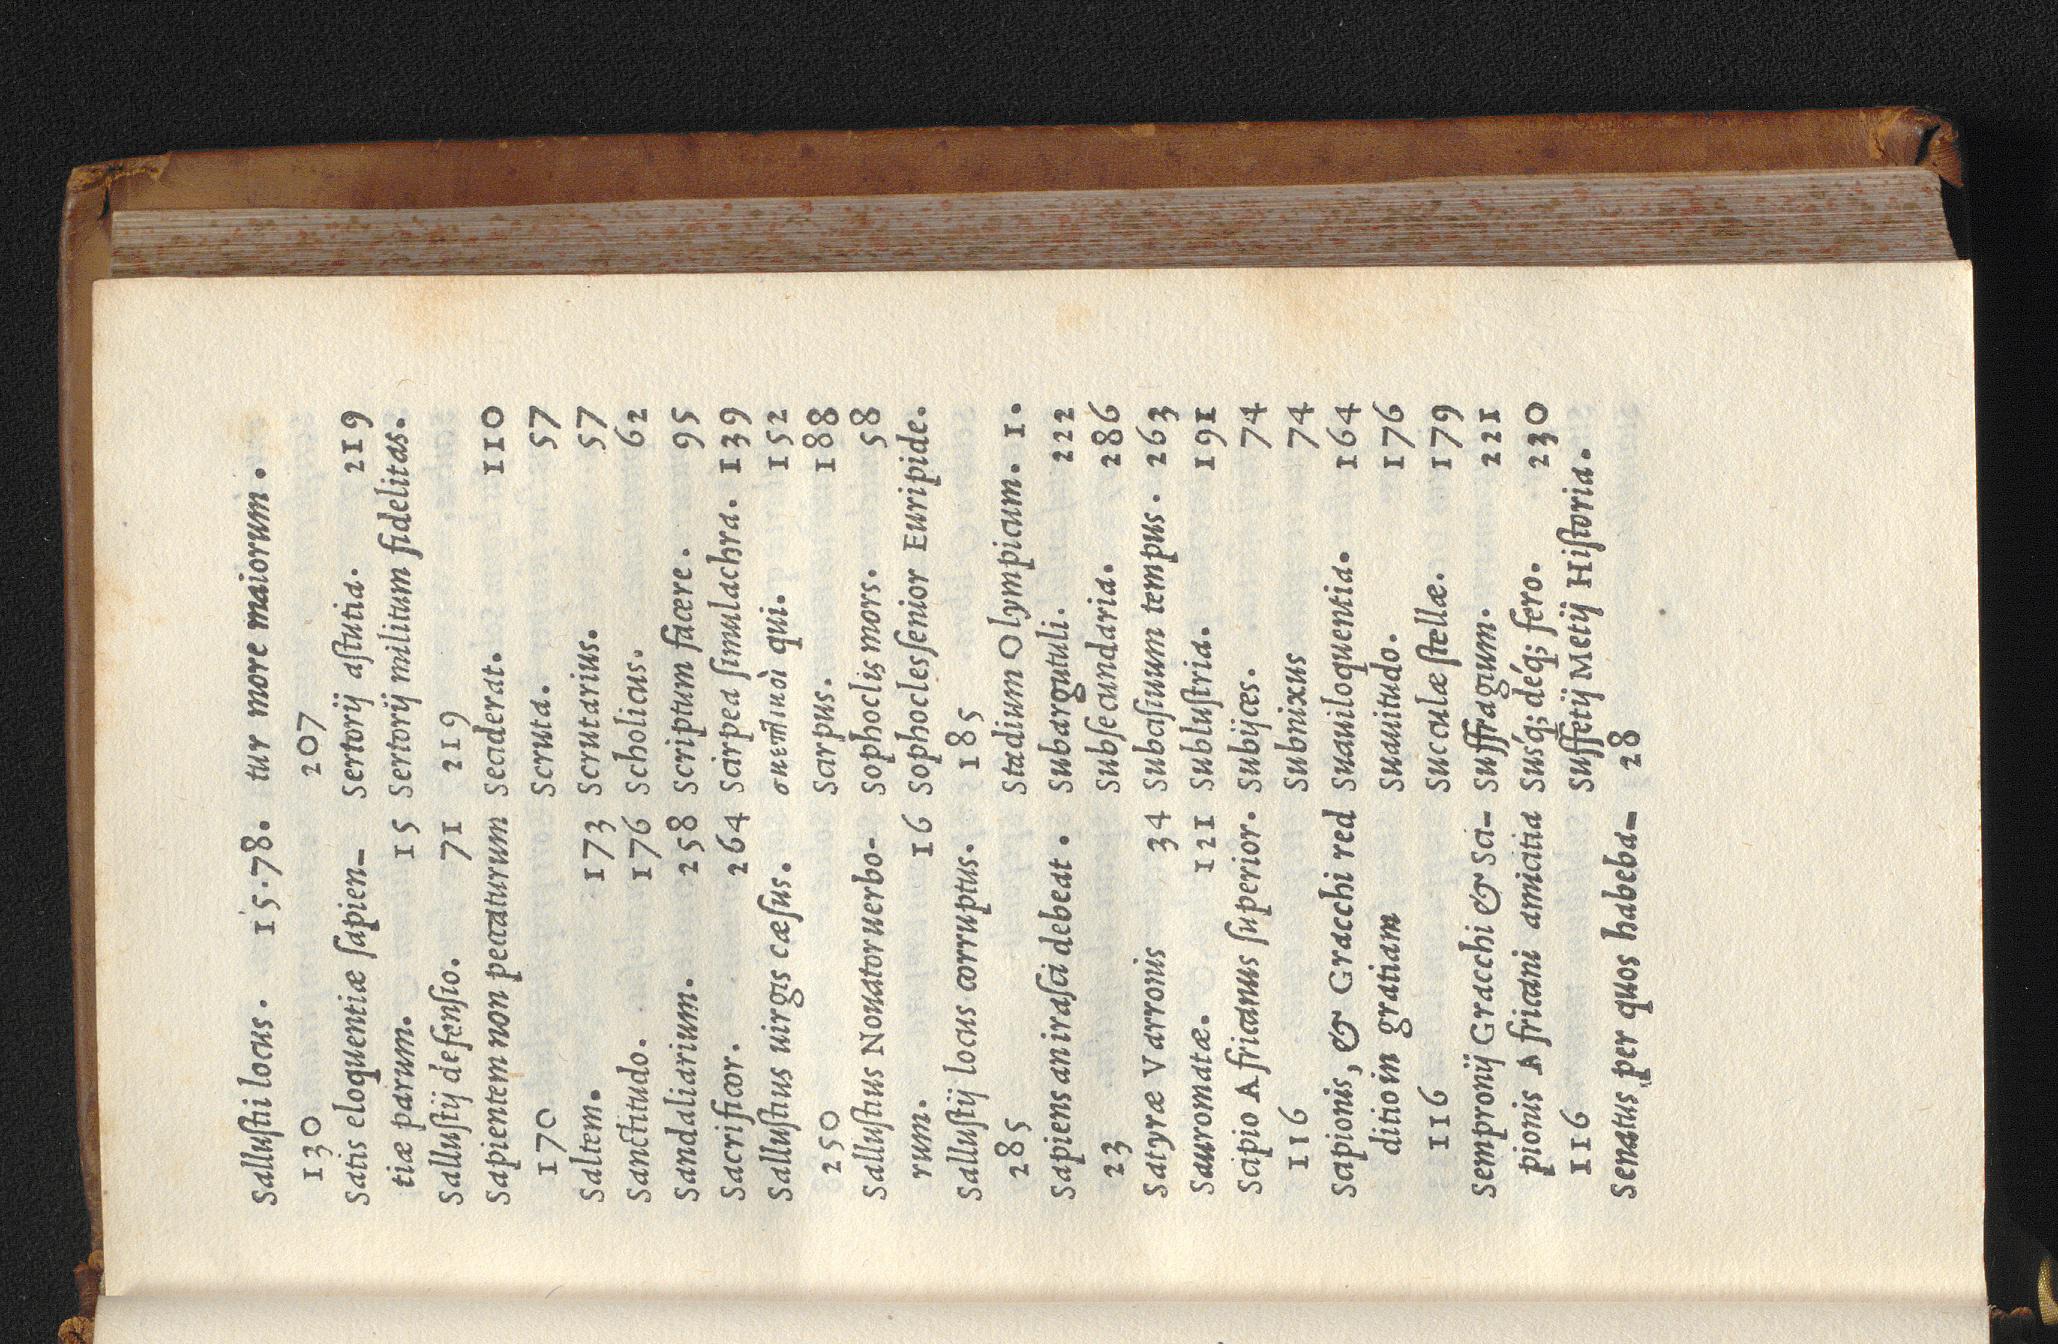 Sallustii locus. 15.78.
130
Satis eloquentiæ sapien-
tiæ parum. 15
Sallustij defensio. 71
Sapientem non peccaturum
170
Saltem. 173
Sanctitudo. 176
Sandaliarium. 258
Sacrificor. 264
Sallustius uirgis cæsus.
250
Sallustius Nouator uerbo-
rum. 16
Sallustij locus corruptus.
285
Sapiens an irasci debeat.
23
Satyræ Varronis 34
Sauromatæ. 121
Scipio Africanus superior.
116
Scipionis, & Gracchi red
ditio in gratiam
116
Sempronij Gracchi & Sci-
pionis Africani amicitia
116
Senatus per quos habeba-
tur more maiorum.
207
Sertorij astutia. 219
Sertorij militum fidelitas.
219
Secaderat. 110
Scruta. 57
Scrutarius. 57
Scholicus. 62
Scriptum facere. 95
Scirpea simulachra. 139
qui. 152
Scirpus. 188
Sophoclis mors. 58
Sophocles senior Euripide.
185
Stadium Olympicum. 1.
Subargutuli. 222
Subsecundaria. 286
Subcisiuum tempus. 263
Sublustria. 191
Subijces. 74
Subnixus 74
Suauiloquentia. 164
Suauitudo. 176
Succulæ stellæ. 179
Suffragium. 221
Susq́; déq́; fero. 230
Suffetij Metij Historia.
28